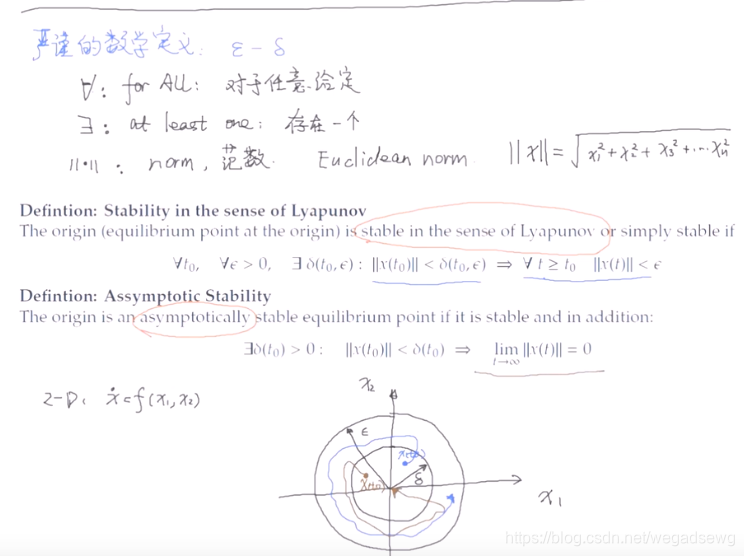 严谨的数学定义: ε - δ
∀: for ALL: 对于任意给定
∃: at least one: 存在一个
||·||: norm, 范数. Euclidean norm. ||x|| = √x₁² + x₂² + x₃² + ... xₙ²
Defintion: Stability in the sense of Lyapunov
The origin (equilibrium point at the origin) is stable in the sense of Lyapunov or simply stable if
∀t₀, ∀ϵ > 0, ∃ δ(t₀, ϵ) : ||x(t₀)|| < δ(t₀, ϵ) ⇒ ∀ t ≥ t₀ ||x(t)|| < ϵ
Defintion: Assymptotic Stability
The origin is an asymptotically stable equilibrium point if it is stable and in addition:
∃δ(t₀) > 0 : ||x(t₀)|| < δ(t₀) ⇒ lim t→∞ ||x(t)|| = 0
2-D: ẋ = f(x₁, x₂)
x₂
ε
δ
x₁
https://blog.csdn.net/wegadsewg